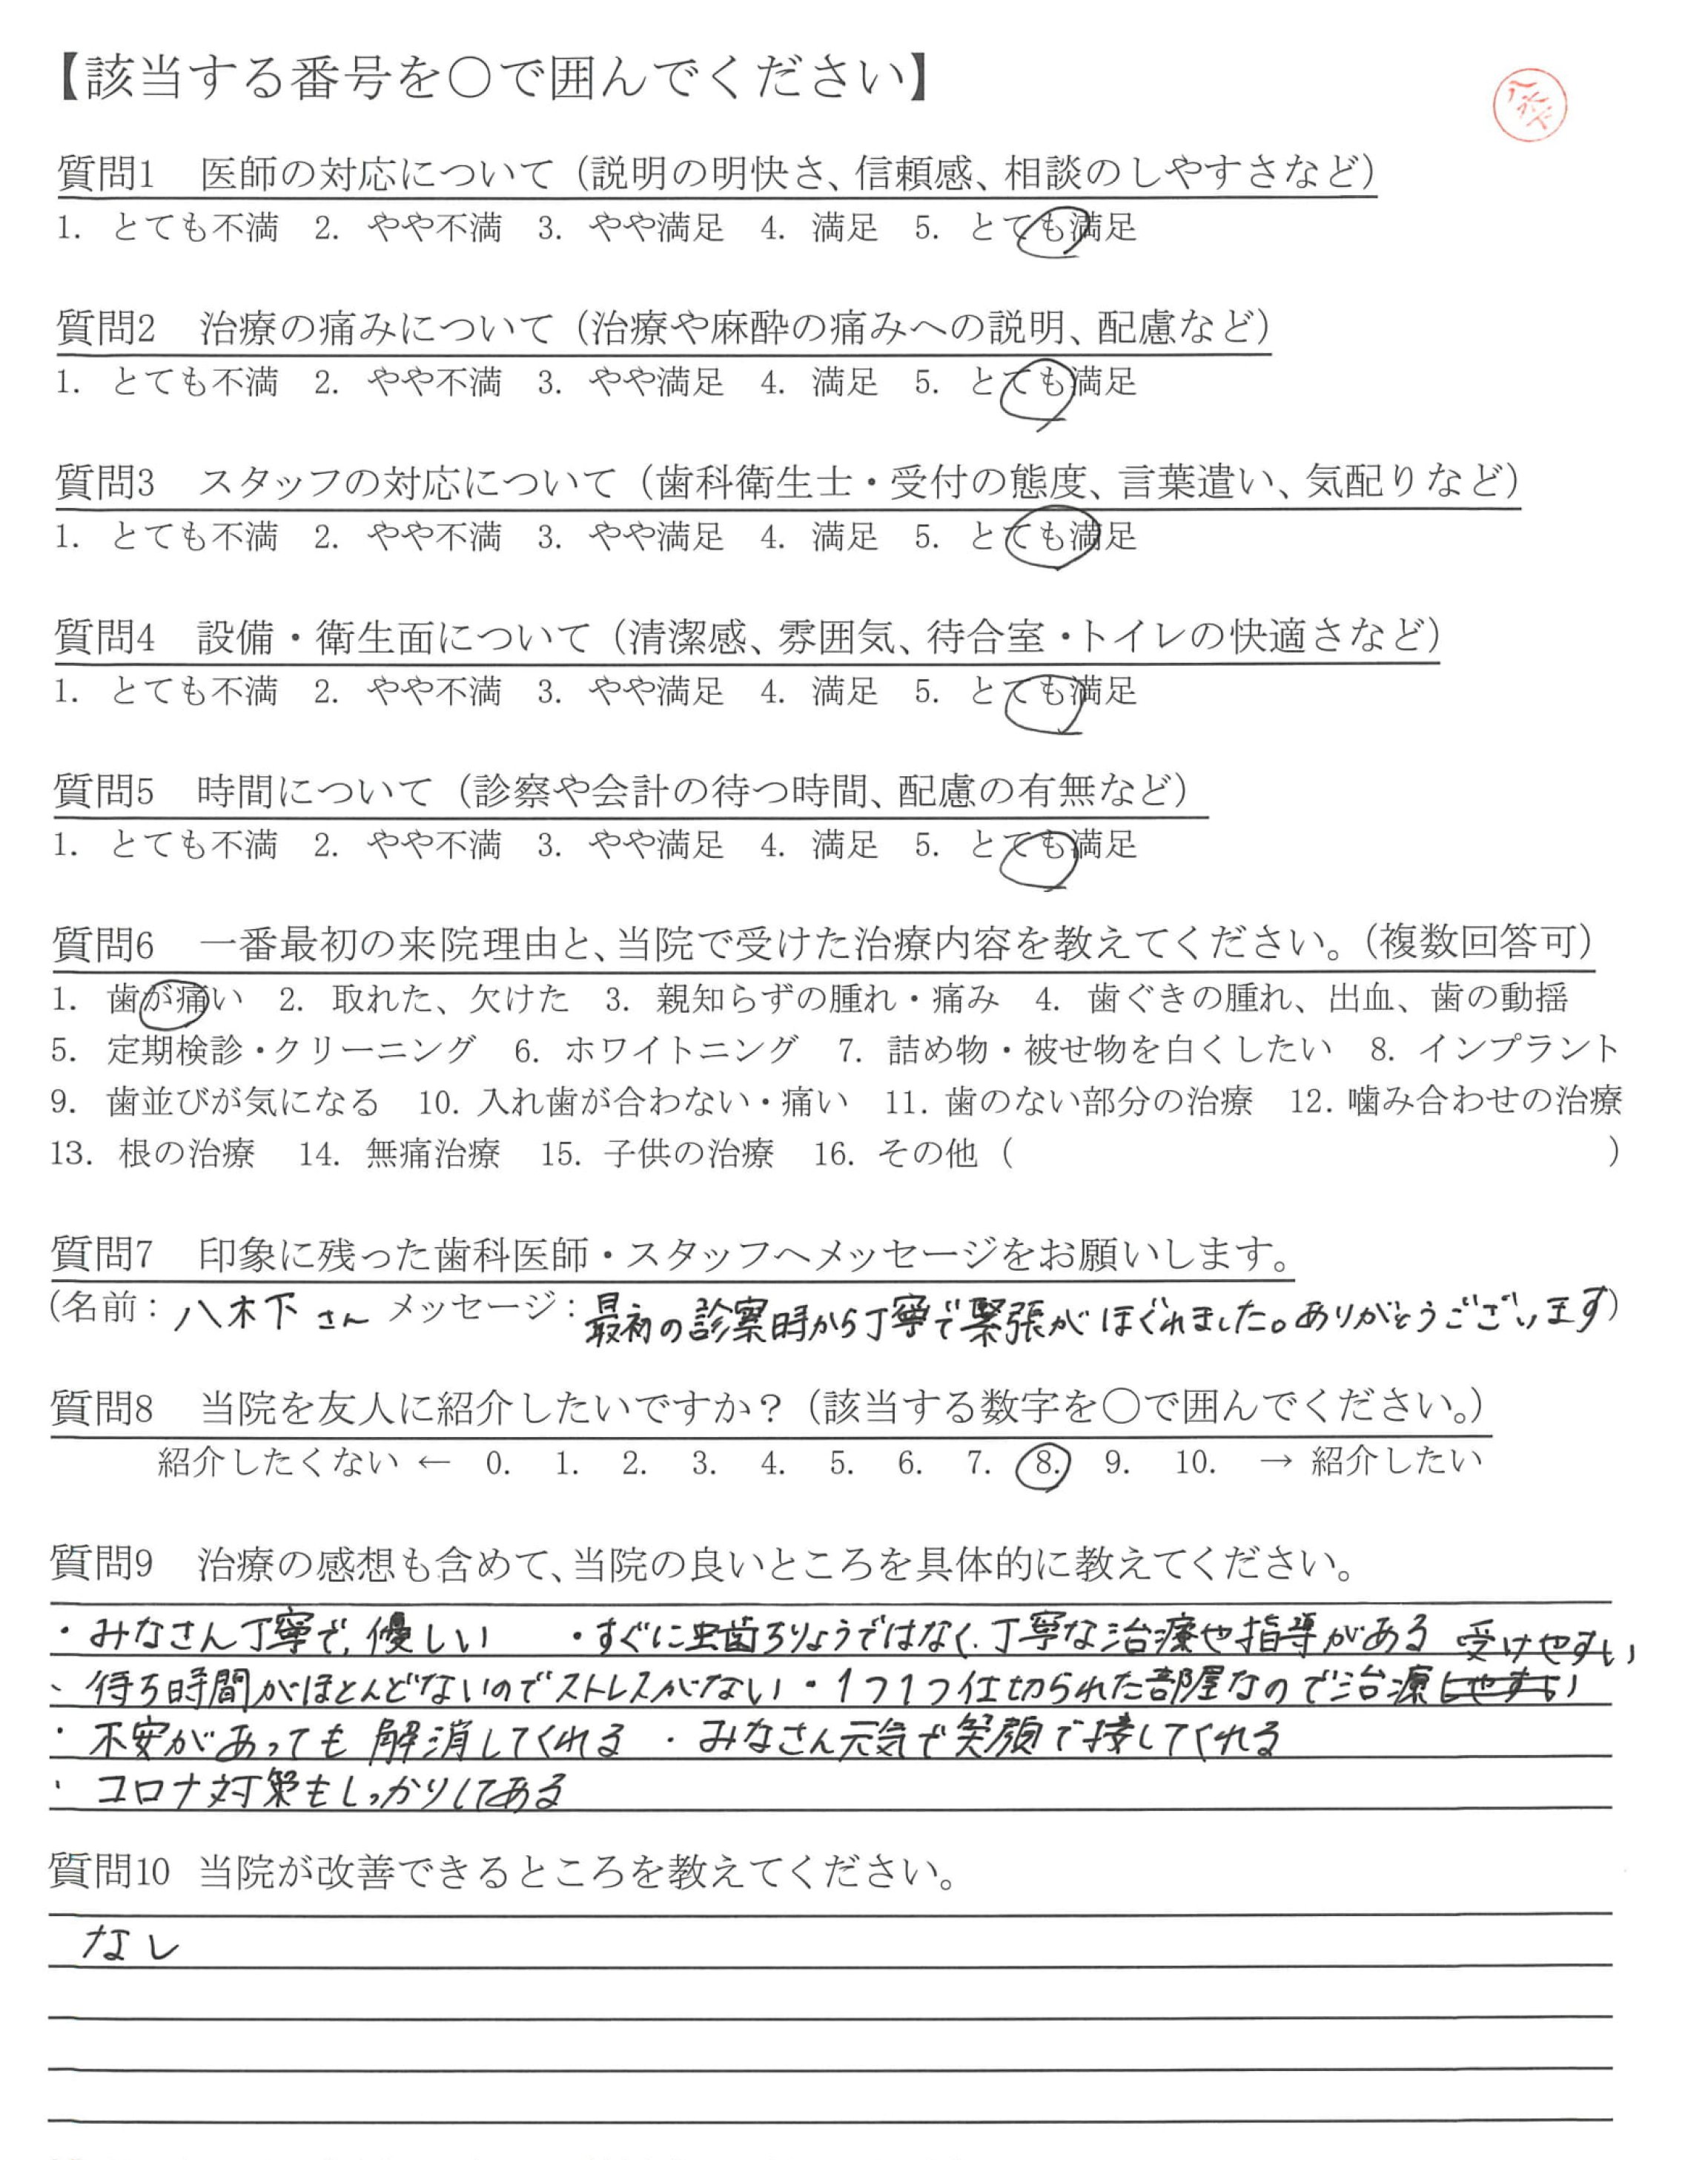 【該当する番号を〇で囲んでください】
八木下
質問1 医師の対応について（説明の明快さ、信頼感、相談のしやすさなど）
1. とても不満 2. やや不満 3. やや満足 4. 満足 5. とても満足
質問2 治療の痛みについて（治療や麻酔の痛みへの説明、配慮など）
1. とても不満 2. やや不満 3. やや満足 4. 満足 5. とても満足
質問3 スタッフの対応について（歯科衛生士・受付の態度、言葉遣い、気配りなど）
1. とても不満 2. やや不満 3. やや満足 4. 満足 5. とても満足
質問4 設備・衛生面について（清潔感、雰囲気、待合室・トイレの快適さなど）
1. とても不満 2. やや不満 3. やや満足 4. 満足 5. とても満足
質問5 時間について（診察や会計の待つ時間、配慮の有無など）
1. とても不満 2. やや不満 3. やや満足 4. 満足 5. とても満足
質問6 一番最初の来院理由と、当院で受けた治療内容を教えてください。（複数回答可）
1. 歯が痛い 2. 取れた、欠けた 3. 親知らずの腫れ・痛み 4. 歯ぐきの腫れ、出血、歯の動揺
5. 定期検診・クリーニング 6. ホワイトニング 7. 詰め物・被せ物を白くしたい 8. インプラント
9. 歯並びが気になる 10. 入れ歯が合わない・痛い 11. 歯のない部分の治療 12. 噛み合わせの治療
13. 根の治療 14. 無痛治療 15. 子供の治療 16. その他（ ）
質問7 印象に残った歯科医師・スタッフへメッセージをお願いします。
（名前：八木下さん メッセージ：最初の診察時から丁寧で緊張がほぐれました。ありがとうございます）
質問8 当院を友人に紹介したいですか？（該当する数字を〇で囲んでください。）
紹介したくない ← 0. 1. 2. 3. 4. 5. 6. 7. 8. 9. 10. → 紹介したい
質問9 治療の感想も含めて、当院の良いところを具体的に教えてください。
・みなさん丁寧で、優しい ・すぐに虫歯ちりょうではなく、丁寧な治療や指導がある 受けやすい
、待ち時間がほとんどないのでストレスがない・1つ1つ仕切られた部屋なので治療しやすい
・不安があっても解消してくれる ・みなさん元気で笑顔で接してくれる
・コロナ対策もしっかりしてある
質問10 当院が改善できるところを教えてください。
なし